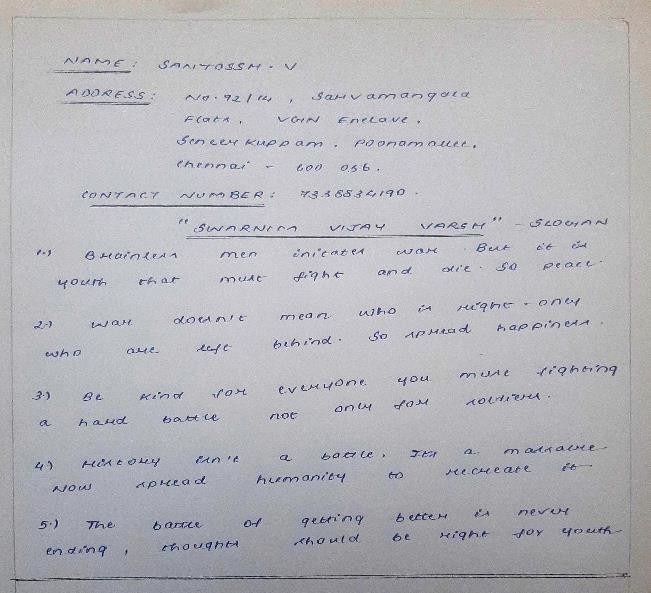 NAME: SANTOSSH. V
ADDRESS: No. 92/14, Sarvamangala
Flats, VGN Enclave,
Seneer Kuppam, Poonamallee,
Chennai - 600 056.
CONTACT NUMBER: 7338534190.
"SWARNIM VIJAY VARSH" - SLOGAN
1.) Brainless men iniciates war. But it is
youth that must fight and die. So peace.
2.) War doesn't mean who is right - only
who are left behind. So spread happiness.
3.) Be kind for everyone you must fighting
a hard battle not only for soldiers.
4.) History isn't a battle. Its a massacre
Now spread humanity to recreate it
5.) The battle of getting better is never
ending, thoughts should be right for youth